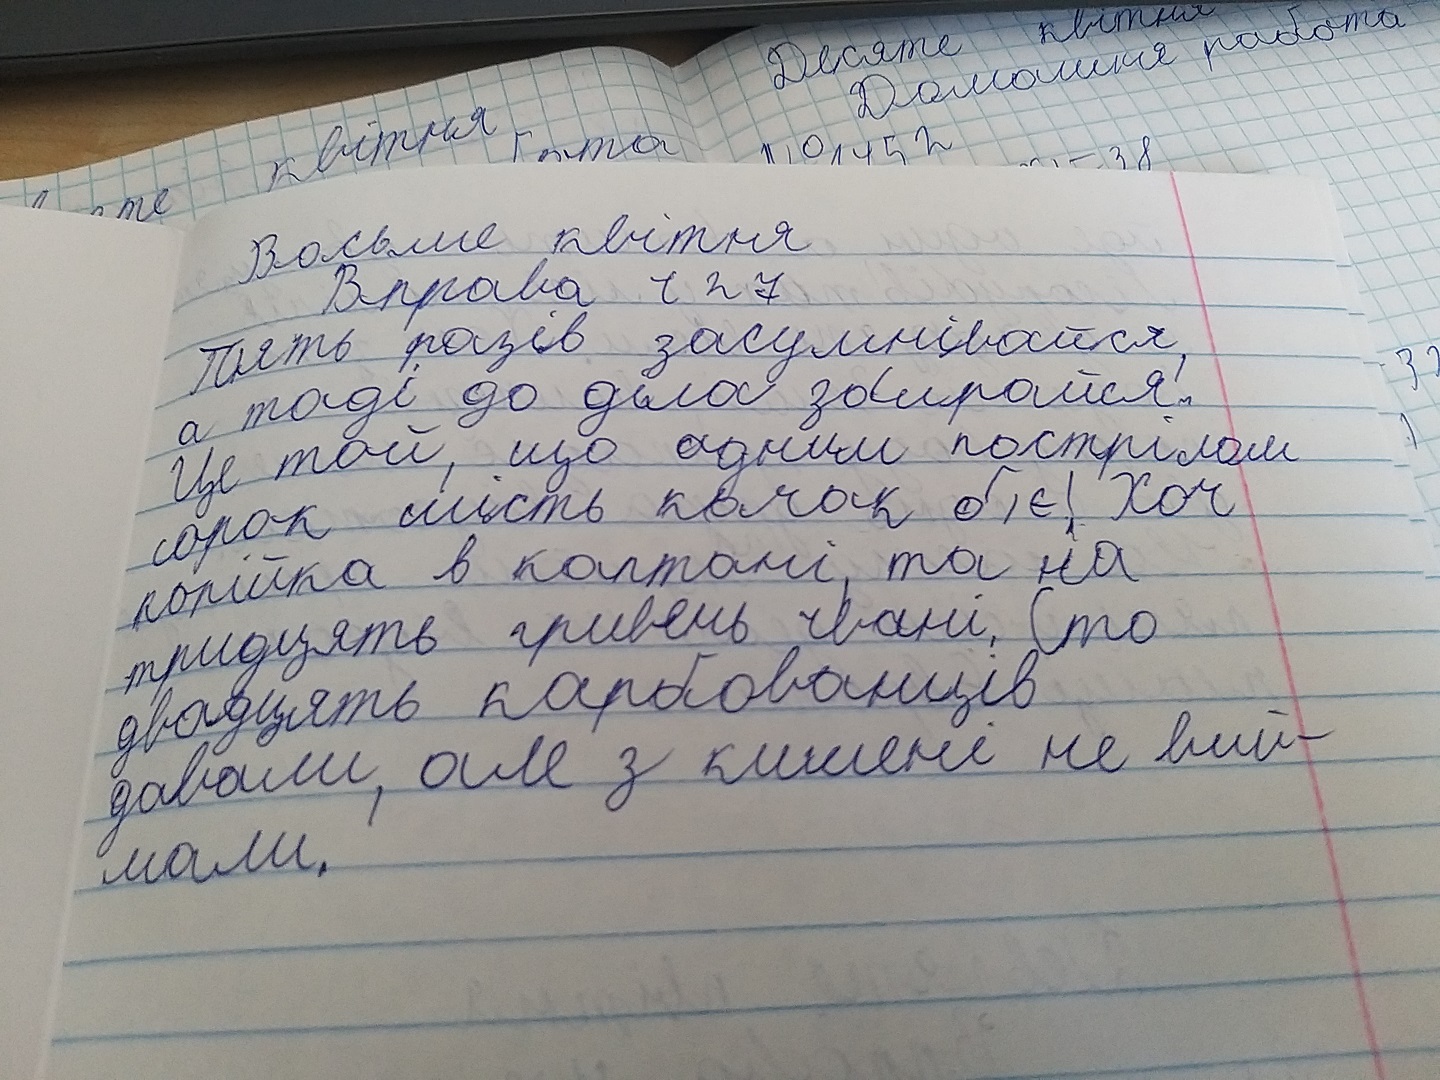 Десяте квітня
Домашня работа
квітня
Восьме квітня
Вправа ч 27
Пять разів засумнівайся,
а тоді до діла збирайся!
Це той, що одним пострілом
сорок шість качок б'є! Хоч
копійка в каптані, та на
тридцять гривень чвані. Сто
двадцять карбованців
давали, але з кишені не вий-
мали.